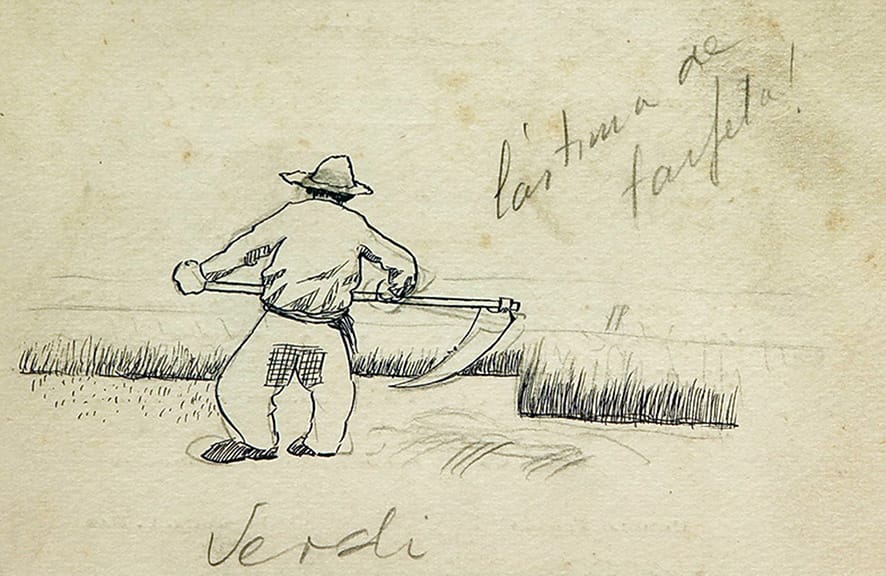 lástima de
tarjeta!
Verdi